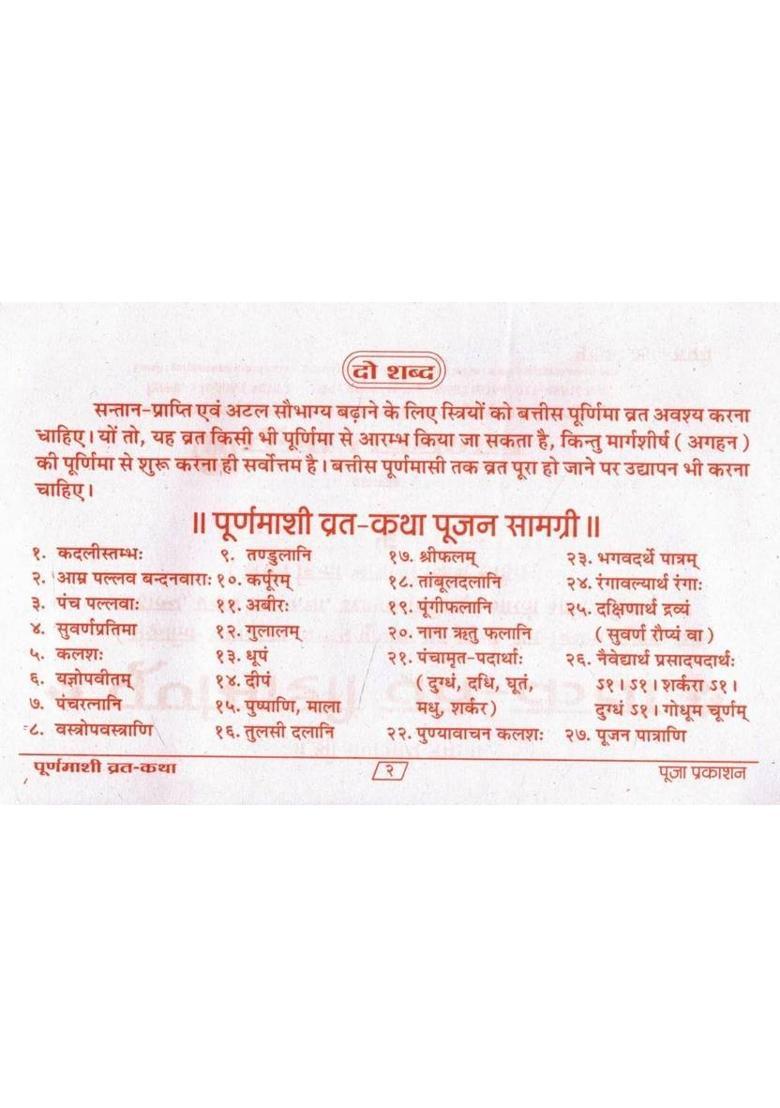 दो शब्द
सन्तान-प्राप्ति एवं अटल सौभाग्य बढ़ाने के लिए स्त्रियों को बत्तीस पूर्णिमा व्रत अवश्य करना
चाहिए। यों तो, यह व्रत किसी भी पूर्णिमा से आरम्भ किया जा सकता है, किन्तु मार्गशीर्ष ( अगहन )
की पूर्णिमा से शुरू करना ही सर्वोत्तम है। बत्तीस पूर्णमासी तक व्रत पूरा हो जाने पर उद्यापन भी करना
चाहिए।
॥ पूर्णमाशी व्रत-कथा पूजन सामग्री ॥
१. कदलीस्तम्भः
२. आम्र पल्लव बन्दनवाराः
३. पंच पल्लवाः
४. सुवर्णप्रतिमा
५. कलशः
६. यज्ञोपवीतम्
७. पंचरत्नानि
८. वस्त्रोपवस्त्राणि
९. तण्डुलानि
१०. कर्पूरम्
११. अबीरः
१२. गुलालम्
१३. धूपं
१४. दीपं
१५. पुष्पाणि, माला
१६. तुलसी दलानि
१७. श्रीफलम्
१८. तांबूलदलानि
१९. पूंगीफलानि
२०. नाना ऋतु फलानि
२१. पंचामृत-पदार्थाः
( दुग्धं, दधि, घृतं,
मधु, शर्कर )
२२. पुण्यावाचन कलशः
२३. भगवदर्थे पात्रम्
२४. रंगावल्यार्थ रंगाः
२५. दक्षिणार्थ द्रव्यं
( सुवर्ण रौप्यं वा )
२६. नैवेद्यार्थ प्रसादपदार्थः
ऽ१। ऽ१। शर्करा ऽ१।
दुग्धं ऽ१। गोधूम चूर्णम्
२७. पूजन पात्राणि
पूर्णमाशी व्रत-कथा
२
पूजा प्रकाशन